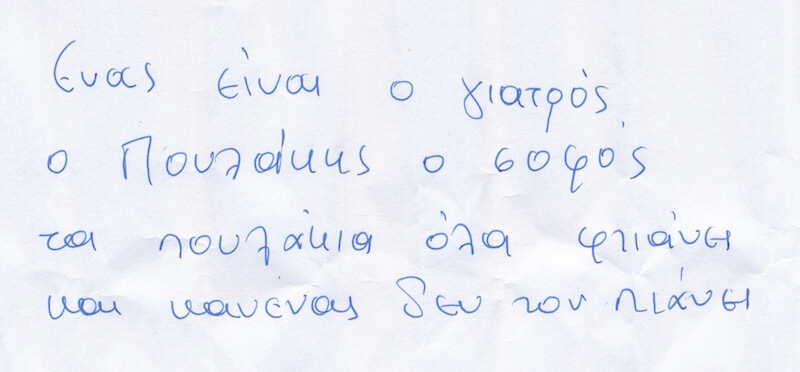 Ενας είναι ο γιατρός
ο Πουλάκης ο σοφός
τα πουλάκια όλα φτιάνει
και κανένας δεν τον πιάνει